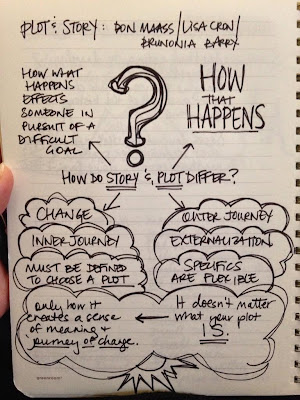 PLOT & STORY: DON MAASS/LISA CRON/
BRUNONIA BARRY
HOW WHAT
HAPPENS
EFFECTS
SOMEONE IN
PURSUIT OF A
DIFFICULT
GOAL
?
HOW
THAT
HAPPENS
HOW DO STORY & PLOT DIFFER?
CHANGE
INNER JOURNEY
MUST BE DEFINED
TO CHOOSE A PLOT
OUTER JOURNEY
EXTERNALIZATION
SPECIFICS
ARE FLEXIBLE
only how it
creates a sense
of meaning &
journey of change.
It doesn't matter
what your plot
IS.